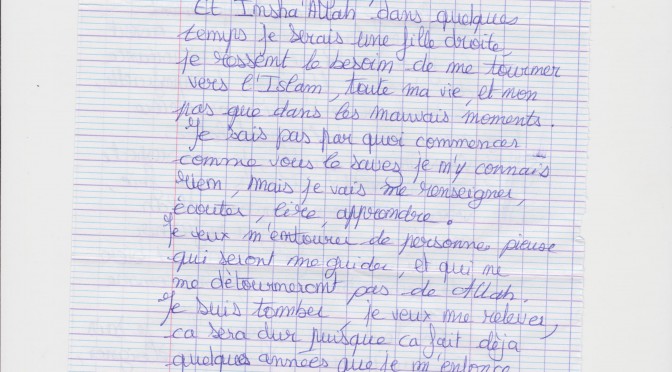 Et Insha'Allah dans quelques
temps je serais une fille droite,
je rossent le besoin de me tourner
vers l'Islam, toute ma vie, et non
pas que dans les mauvais moments.
Je sais pas par quoi commencer
comme vous le savez je m'y connais
rien, mais je vais me renseigner,
écouter, lire, apprendre.
Je veux m'entourer de personne pieuse
qui seront me guider, et qui ne
me détourneront pas de Allah.
Je suis tomber, je veux me relever,
ca sera dur puisque ca fait déja
quelques années que je m'enfonce